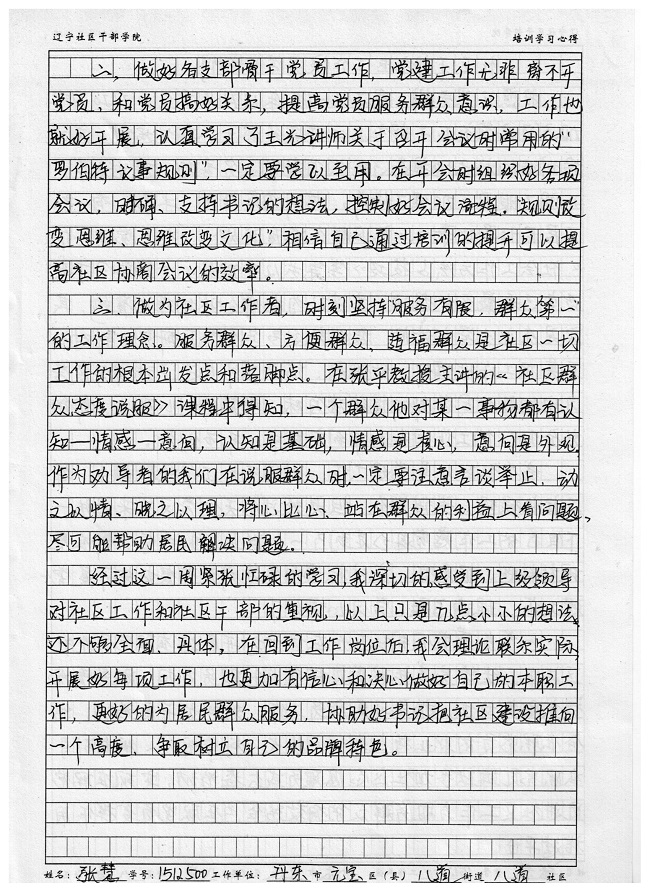 辽宁社区干部学院 培训学习心得
二、做好各支部骨干党员工作，党建工作无非离不开
党员，和党员搞好关系，提高党员服务群众意识，工作也
就好开展，认真学习了王光讲师关于召开会议时常用的“
罗伯特议事规则”，一定要学以至用。在开会时组织好各项
会议，明确、支持书记的想法，控制好会议流程。规则改
变思维、思维改变文化”相信自己通过培训的提升可以提
高社区协商会议的效率。
三、做为社区工作者，时刻坚持服务有限，群众第一”
的工作理念。服务群众、方便群众、造福群众是社区一切
工作的根本出发点和落脚点。在张平教授主讲的《社区群
众态度说服》课程中得知，一个群众他对某一事物都有认
知—情感—意向，认知是基础，情感是核心，意向是外观。
作为劝导者的我们在说服群众时，一定要注意言谈举止，动
之以情、晓之以理，将心比心、站在群众的利益上看问题，
尽可能帮助居民解决问题。
经过这一周紧张忙碌的学习，我深切的感受到上级领导
对社区工作和社区干部的重视，以上只是几点小小的想法，
还不够全面、具体，在回到工作岗位后，我会理论联系实际，
开展好每项工作，也更加有信心和决心做好自己的本职工
作，更好的为居民群众服务，协助好书记把社区建设推向
一个高度，争取树立自己的品牌特色。
姓名：张慧 学号：1512500 工作单位：丹东市元宝区（县）八道街道八道社区